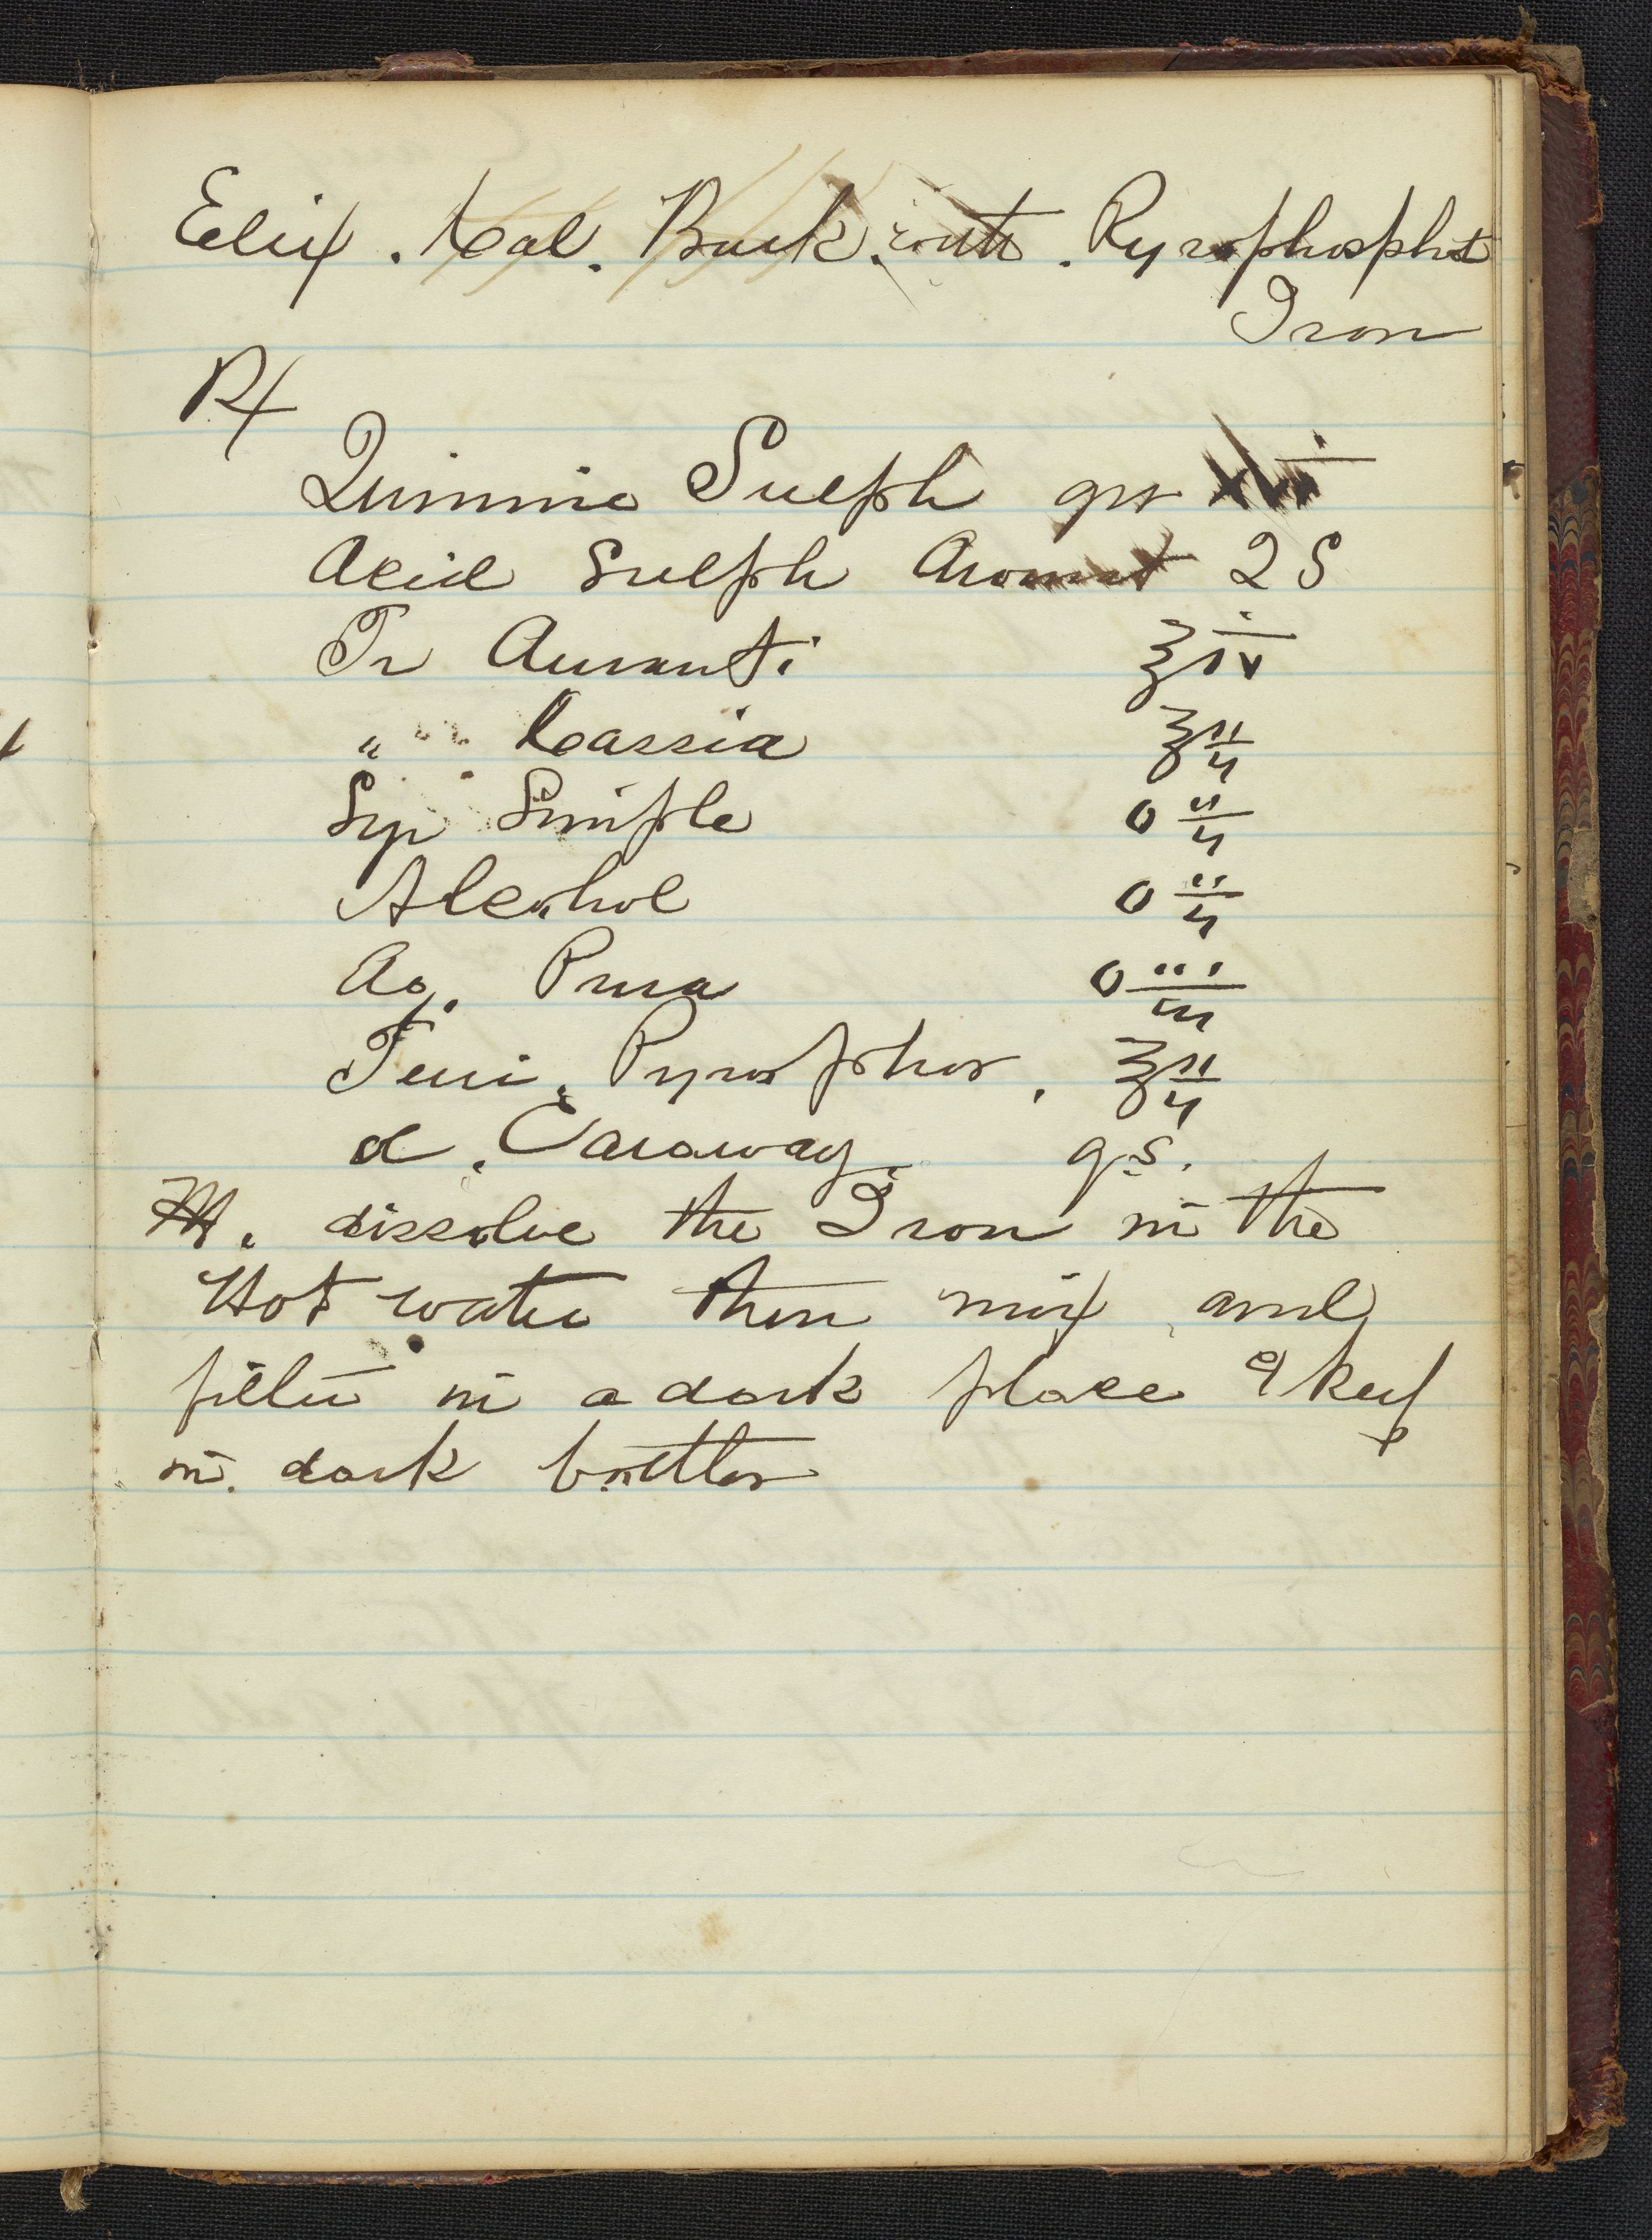 Elix. Cal. Bark. with. Pyrophosphat
Iron
Rx
Quinnie Sulph grs
Acid Sulph Aromat 2 S
Tr Auranti ℥iv
" " Cassia ℥ii
Syr Simple O ii
Alcohol O ii
Aq. Pura O iii
Ferri. Pyrophos. ℥ii
Caraway q.s.
M. dissolve the Iron in the
Hot water then mix and
filter in a dark place & keep
in dark bottles